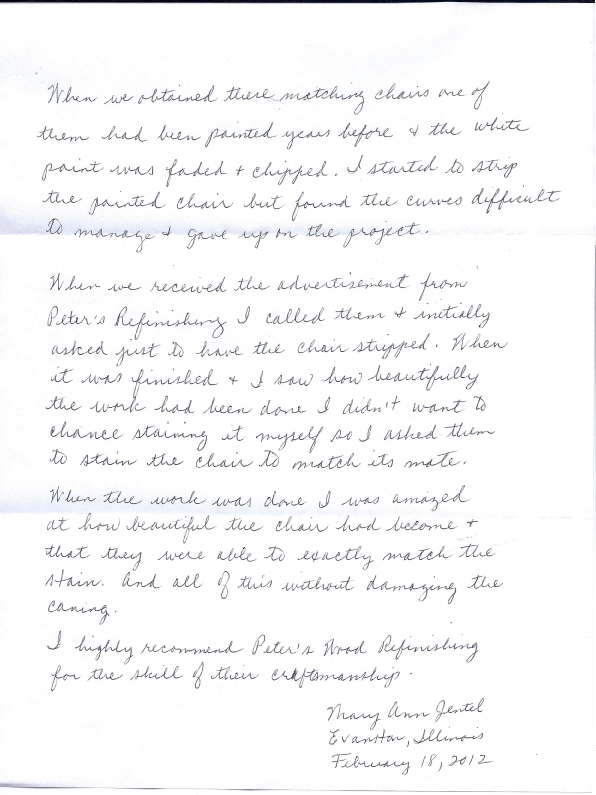 When we obtained these matching chairs one of
them had been painted years before & the white
paint was faded & chipped. I started to strip
the painted chair but found the curves difficult
to manage & gave up on the project.
When we received the advertisement from
Peter's Refinishing I called them & initially
asked just to have the chair stripped. When
it was finished & I saw how beautifully
the work had been done I didn't want to
chance staining it myself so I asked them
to stain the chair to match its mate.
When the work was done I was amazed
at how beautiful the chair had become &
that they were able to exactly match the
stain. And all of this without damaging the
caning.
I highly recommend Peter's Wood Refinishing
for the skill of their craftsmanship.
Mary Ann Jentel
Evanston, Illinois
February 18, 2012